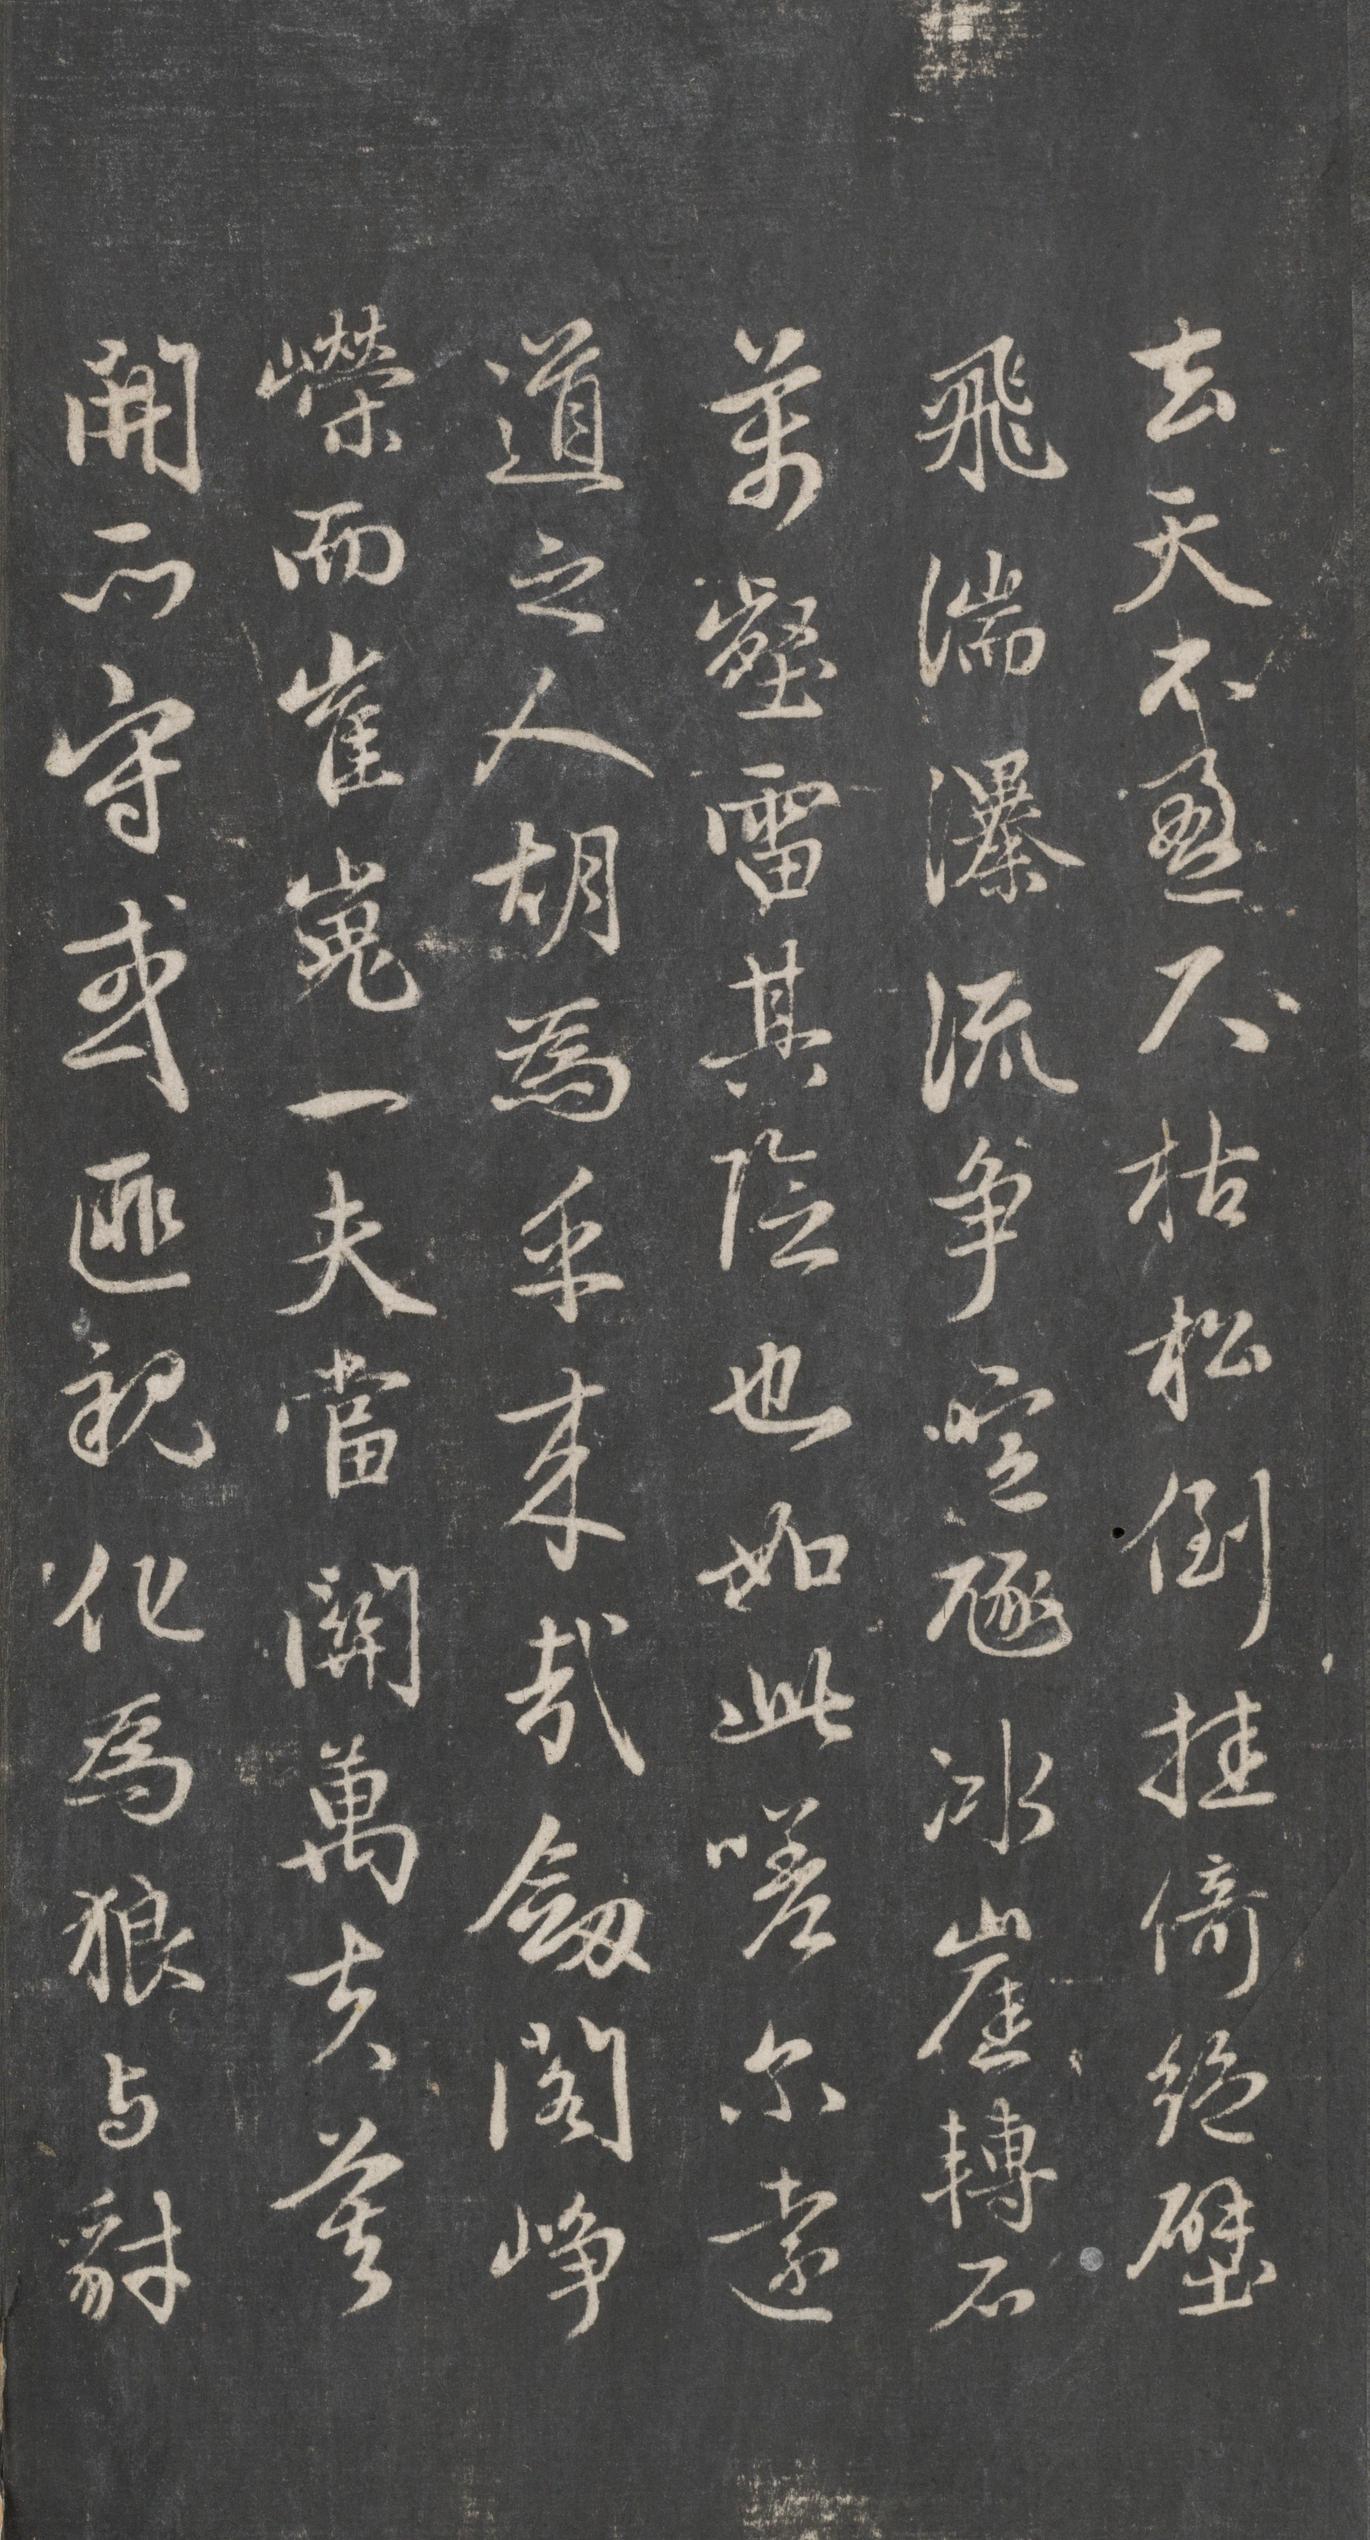 去天不盈尺枯松倒挂倚绝壁
飛湍瀑流争喧豗冰崖轉石
萬壑雷其險也如此嗟尔遠
道之人胡為乎来哉劔閣崢
嶸而崔嵬一夫當關萬夫莫
開所守或匪親化為狼与豺